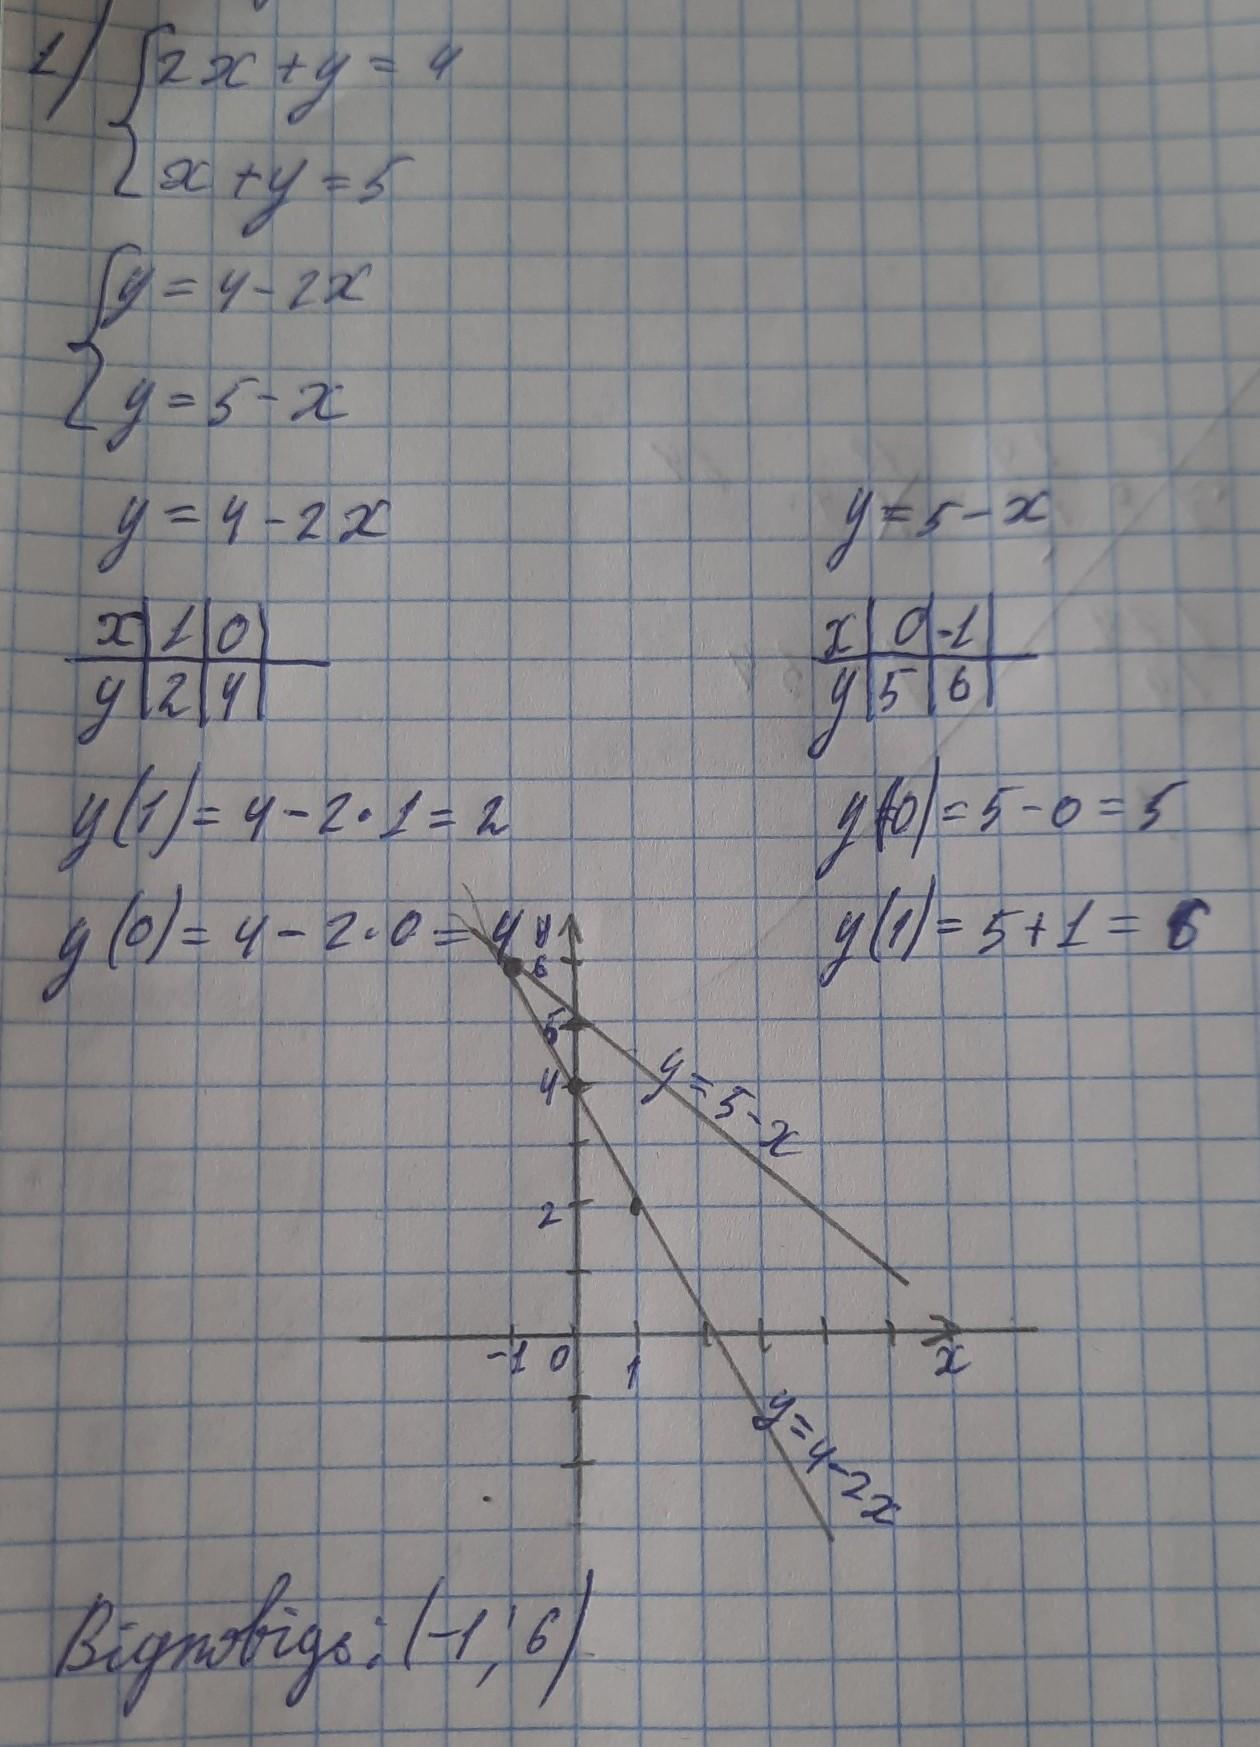 1) {2x + y = 4
x + y = 5
{y = 4 - 2x
y = 5 - x
y = 4 - 2x
y = 5 - x
x | 1 | 0 |
y | 2 | 4 |
x | 0 | -1 |
y | 5 | 6 |
y(1) = 4 - 2·1 = 2
y(0) = 5 - 0 = 5
y(0) = 4 - 2·0 = 4
y(1) = 5 + 1 = 6
y
6
5
4
2
y = 5 - x
-1 0 1 x
y = 4 - 2x
Відповідь: (-1; 6)